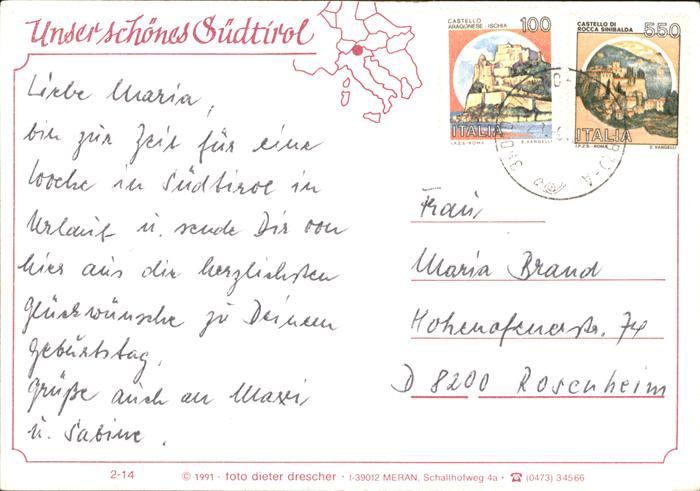 Unser schönes Südtirol
CASTELLO
ARAGONESE - ISCHIA
100
ITALIA
I.P.Z.S. - ROMA E. VANGELLI
CASTELLO DI
ROCCA SINIBALDA
550
ITALIA
I.P.Z.S. - ROMA E. VANGELLI
Liebe Maria,
bin zur Zeit für eine
Woche in Südtirol in
Urlaub u. sende Dir von
hier aus die herzlichsten
Glückwünsche zu Deinem
Geburtstag.
Grüße auch an Maxi
u. Sabine.
Frau
Maria Brand
Hohenofenerstr. 74
D 8200 Rosenheim
2-14 © 1991 · foto dieter drescher · I-39012 MERAN, Schallhofweg 4a · ☎ (0473) 34566